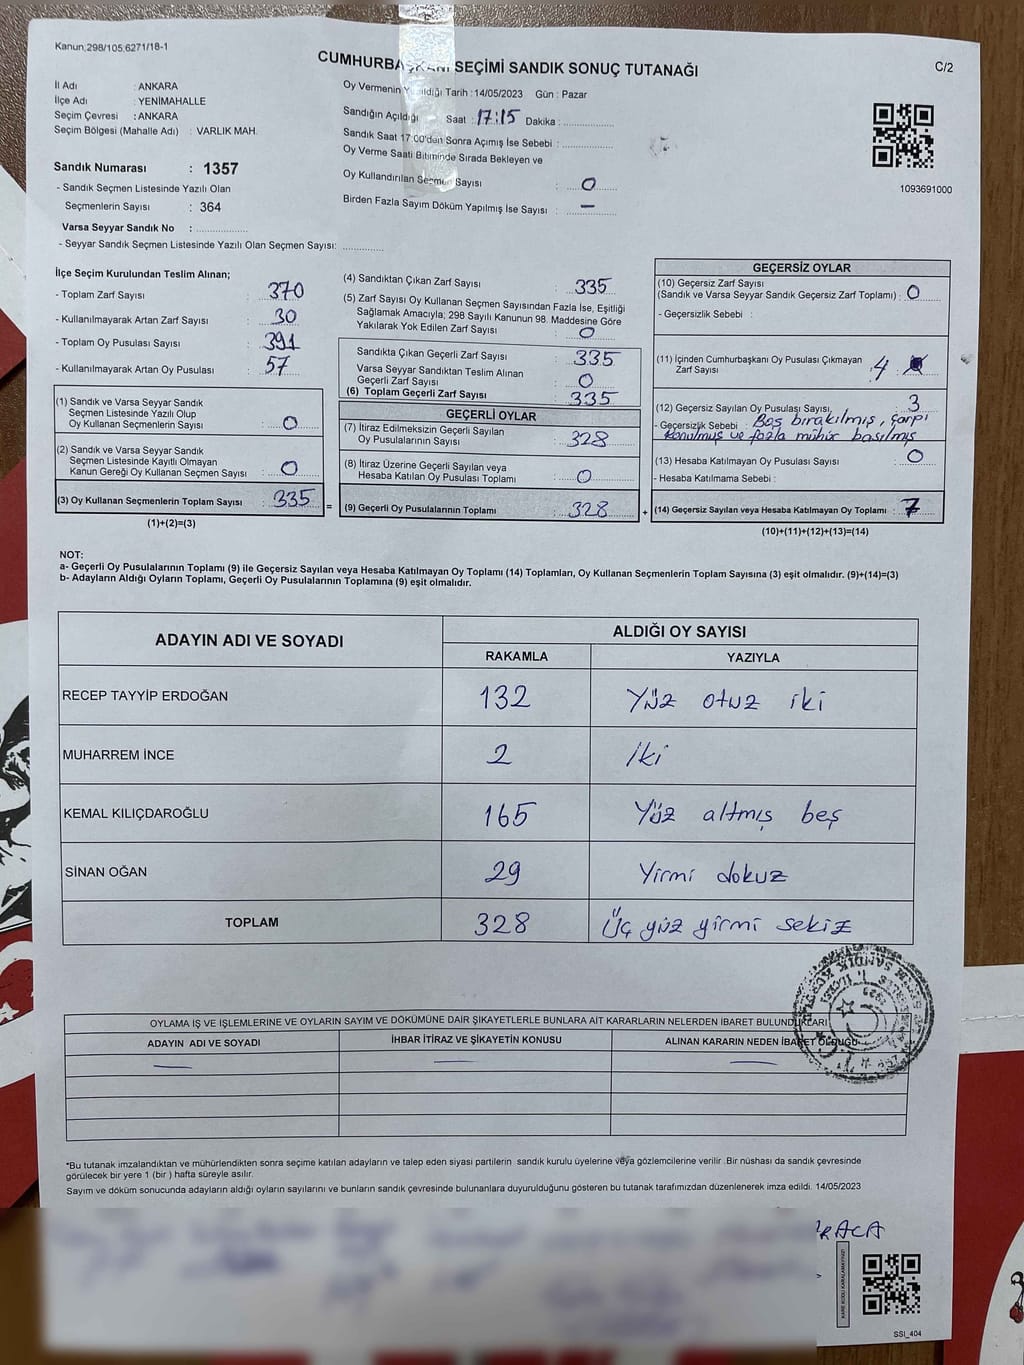 Kanun;298/105;6271/18-1
CUMHURBAŞKANI SEÇİMİ SANDIK SONUÇ TUTANAĞI
C/2
İl Adı : ANKARA
İlçe Adı : YENİMAHALLE
Seçim Çevresi : ANKARA
Seçim Bölgesi (Mahalle Adı) : VARLIK MAH.
Sandık Numarası : 1357
- Sandık Seçmen Listesinde Yazılı Olan
Seçmenlerin Sayısı : 364
Varsa Seyyar Sandık No :
- Seyyar Sandık Seçmen Listesinde Yazılı Olan Seçmen Sayısı:
Oy Vermenin Yapıldığı Tarih : 14/05/2023 Gün : Pazar
Sandığın Açıldığı Saat : 17:15 Dakika :
Sandık Saat 17:00'den Sonra Açımış İse Sebebi :
Oy Verme Saati Bitiminde Sırada Bekleyen ve
Oy Kullandırılan Seçmen Sayısı : 0
Birden Fazla Sayım Döküm Yapılmış İse Sayısı : —
1093691000
İlçe Seçim Kurulundan Teslim Alınan;
- Toplam Zarf Sayısı : 370
- Kullanılmayarak Artan Zarf Sayısı : 30
- Toplam Oy Pusulası Sayısı : 391
- Kullanılmayarak Artan Oy Pusulası : 57
(1) Sandık ve Varsa Seyyar Sandık
Seçmen Listesinde Yazılı Olup
Oy Kullanan Seçmenlerin Sayısı : 0
(2) Sandık ve Varsa Seyyar Sandık
Seçmen Listesinde Kayıtlı Olmayan
Kanun Gereği Oy Kullanan Seçmen Sayısı : 0
(3) Oy Kullanan Seçmenlerin Toplam Sayısı : 335 =
(1)+(2)=(3)
(4) Sandıktan Çıkan Zarf Sayısı : 335
(5) Zarf Sayısı Oy Kullanan Seçmen Sayısından Fazla İse, Eşitliği
Sağlamak Amacıyla; 298 Sayılı Kanunun 98. Maddesine Göre
Yakılarak Yok Edilen Zarf Sayısı : 0
Sandıkta Çıkan Geçerli Zarf Sayısı : 335
Varsa Seyyar Sandıktan Teslim Alınan
Geçerli Zarf Sayısı : 0
(6) Toplam Geçerli Zarf Sayısı : 335
GEÇERLİ OYLAR
(7) İtiraz Edilmeksizin Geçerli Sayılan
Oy Pusulalarının Sayısı : 328
(8) İtiraz Üzerine Geçerli Sayılan veya
Hesaba Katılan Oy Pusulası Toplamı : 0
(9) Geçerli Oy Pusulalarının Toplamı : 328 +
GEÇERSİZ OYLAR
(10) Geçersiz Zarf Sayısı
(Sandık ve Varsa Seyyar Sandık Geçersiz Zarf Toplamı) : 0
- Geçersizlik Sebebi :
(11) İçinden Cumhurbaşkanı Oy Pusulası Çıkmayan
Zarf Sayısı : 4
(12) Geçersiz Sayılan Oy Pusulası Sayısı : 3
- Geçersizlik Sebebi : Boş bırakılmış, çarpı
konulmuş ve fazla mühür basılmış
(13) Hesaba Katılmayan Oy Pusulası Sayısı : 0
- Hesaba Katılmama Sebebi :
(14) Geçersiz Sayılan veya Hesaba Katılmayan Oy Toplamı : 7
(10)+(11)+(12)+(13)=(14)
NOT:
a- Geçerli Oy Pusulalarının Toplamı (9) ile Geçersiz Sayılan veya Hesaba Katılmayan Oy Toplamı (14) Toplamları, Oy Kullanan Seçmenlerin Toplam Sayısına (3) eşit olmalıdır. (9)+(14)=(3)
b- Adayların Aldığı Oyların Toplamı, Geçerli Oy Pusulalarının Toplamına (9) eşit olmalıdır.
ADAYIN ADI VE SOYADI ALDIĞI OY SAYISI
RAKAMLA YAZIYLA
RECEP TAYYİP ERDOĞAN 132 Yüz otuz iki
MUHARREM İNCE 2 İki
KEMAL KILIÇDAROĞLU 165 Yüz altmış beş
SİNAN OĞAN 29 Yirmi dokuz
TOPLAM 328 Üç yüz yirmi sekiz
OYLAMA İŞ VE İŞLEMLERİNE VE OYLARIN SAYIM VE DÖKÜMÜNE DAİR ŞİKAYETLERLE BUNLARA AİT KARARLARIN NELERDEN İBARET BULUNDUKLARI
ADAYIN ADI VE SOYADI İHBAR İTİRAZ VE ŞİKAYETİN KONUSU ALINAN KARARIN NEDEN İBARET OLDUĞU
— — —
*Bu tutanak imzalandıktan ve mühürlendikten sonra seçime katılan adayların ve talep eden siyasi partilerin sandık kurulu üyelerine veya gözlemcilerine verilir .Bir nüshası da sandık çevresinde
görülecek bir yere 1 (bir ) hafta süreyle asılır.
Sayım ve döküm sonucunda adayların aldığı oyların sayılarını ve bunların sandık çevresinde bulunanlara duyurulduğunu gösteren bu tutanak tarafımızdan düzenlenerek imza edildi. 14/05/2023
KARE KODU KARALAMAYINIZ!
SSI_404